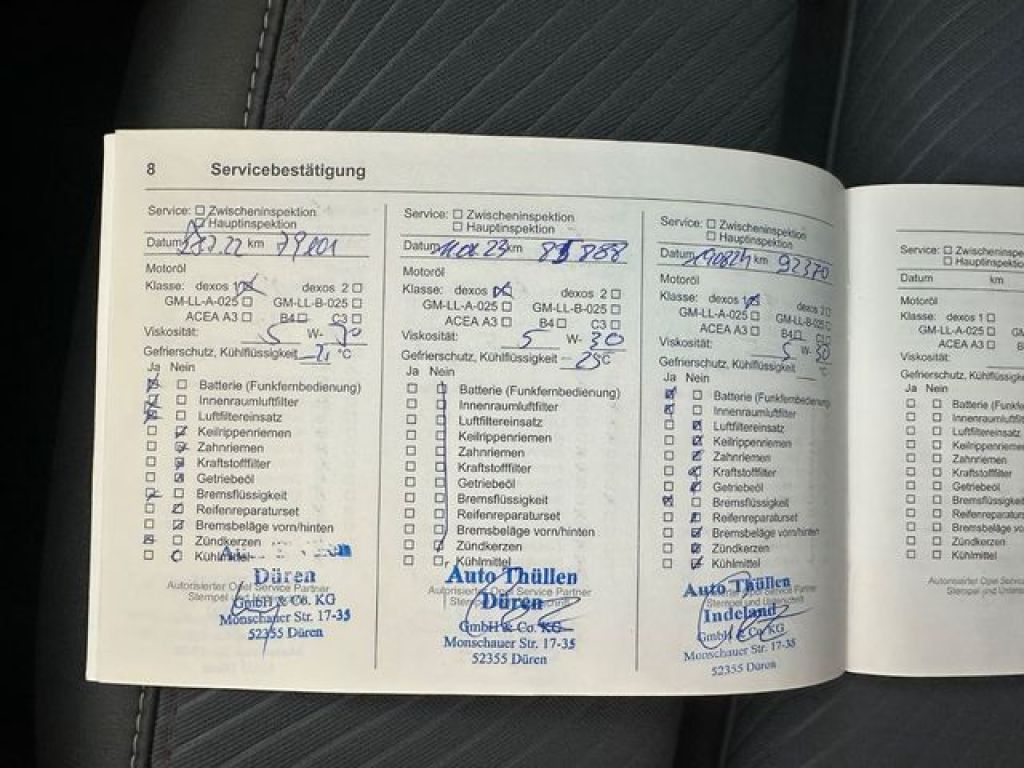 8 Servicebestätigung
Service: Zwischeninspektion
Hauptinspektion
Datum km 79201
Motoröl
Klasse: dexos 1 dexos 2
GM-LL-A-025 GM-LL-B-025
ACEA A3 B4 C3
Viskosität: 5 W- 30
Gefrierschutz, Kühlflüssigkeit °C
Ja Nein
Batterie (Funkfernbedienung)
Innenraumluftfilter
Luftfiltereinsatz
Keilrippenriemen
Zahnriemen
Kraftstofffilter
Getriebeöl
Bremsflüssigkeit
Reifenreparaturset
Bremsbeläge vorn/hinten
Zündkerzen
Kühlmittel
Düren
Autorisierter Opel Service Partner
Stempel
GmbH & Co. KG
Monschauer Str. 17-35
52355 Düren
Service: Zwischeninspektion
Hauptinspektion
Datum km
Motoröl
Klasse: dexos 1 dexos 2
GM-LL-A-025 GM-LL-B-025
ACEA A3 B4 C3
Viskosität: 5 W- 30
Gefrierschutz, Kühlflüssigkeit °C
Ja Nein
Batterie (Funkfernbedienung)
Innenraumluftfilter
Luftfiltereinsatz
Keilrippenriemen
Zahnriemen
Kraftstofffilter
Getriebeöl
Bremsflüssigkeit
Reifenreparaturset
Bremsbeläge vorn/hinten
Zündkerzen
Kühlmittel
Auto Thüllen
Autorisierter Opel Service Partner
Düren
GmbH & Co. KG
Monschauer Str. 17-35
52355 Düren
Service: Zwischeninspektion
Hauptinspektion
Datum km
Motoröl
Klasse: dexos 1 dexos 2
GM-LL-A-025 GM-LL-B-025
ACEA A3 B4 C3
Viskosität: 5 W- 30
Gefrierschutz, Kühlflüssigkeit °C
Ja Nein
Batterie (Funkfernbedienung
Innenraumluftfilter
Luftfiltereinsatz
Keilrippenriemen
Zahnriemen
Kraftstofffilter
Getriebeöl
Bremsflüssigkeit
Reifenreparaturset
Bremsbeläge vorn/hinten
Zündkerzen
Kühlmittel
Auto Thüllen
Indeland
GmbH & Co. KG
Monschauer Str. 17-35
52355 Düren
Service: Zwischeninspektion
Hauptinspektio
Datum km
Motoröl
Klasse: dexos 1
GM-LL-A-025
ACEA A3
Viskosität:
Gefrierschutz, Kühlflüssigke
Ja Nein
Batterie (Funkfe
Innenraumluftfi
Luftfiltereinsatz
Keilrippenriemen
Zahnriemen
Kraftstofffilter
Getriebeöl
Bremsflüssigkeit
Reifenreparaturset
Bremsbeläge vo
Zündkerzen
Kühlmittel
Autorisierter Opel Servic
Stempel und Unters